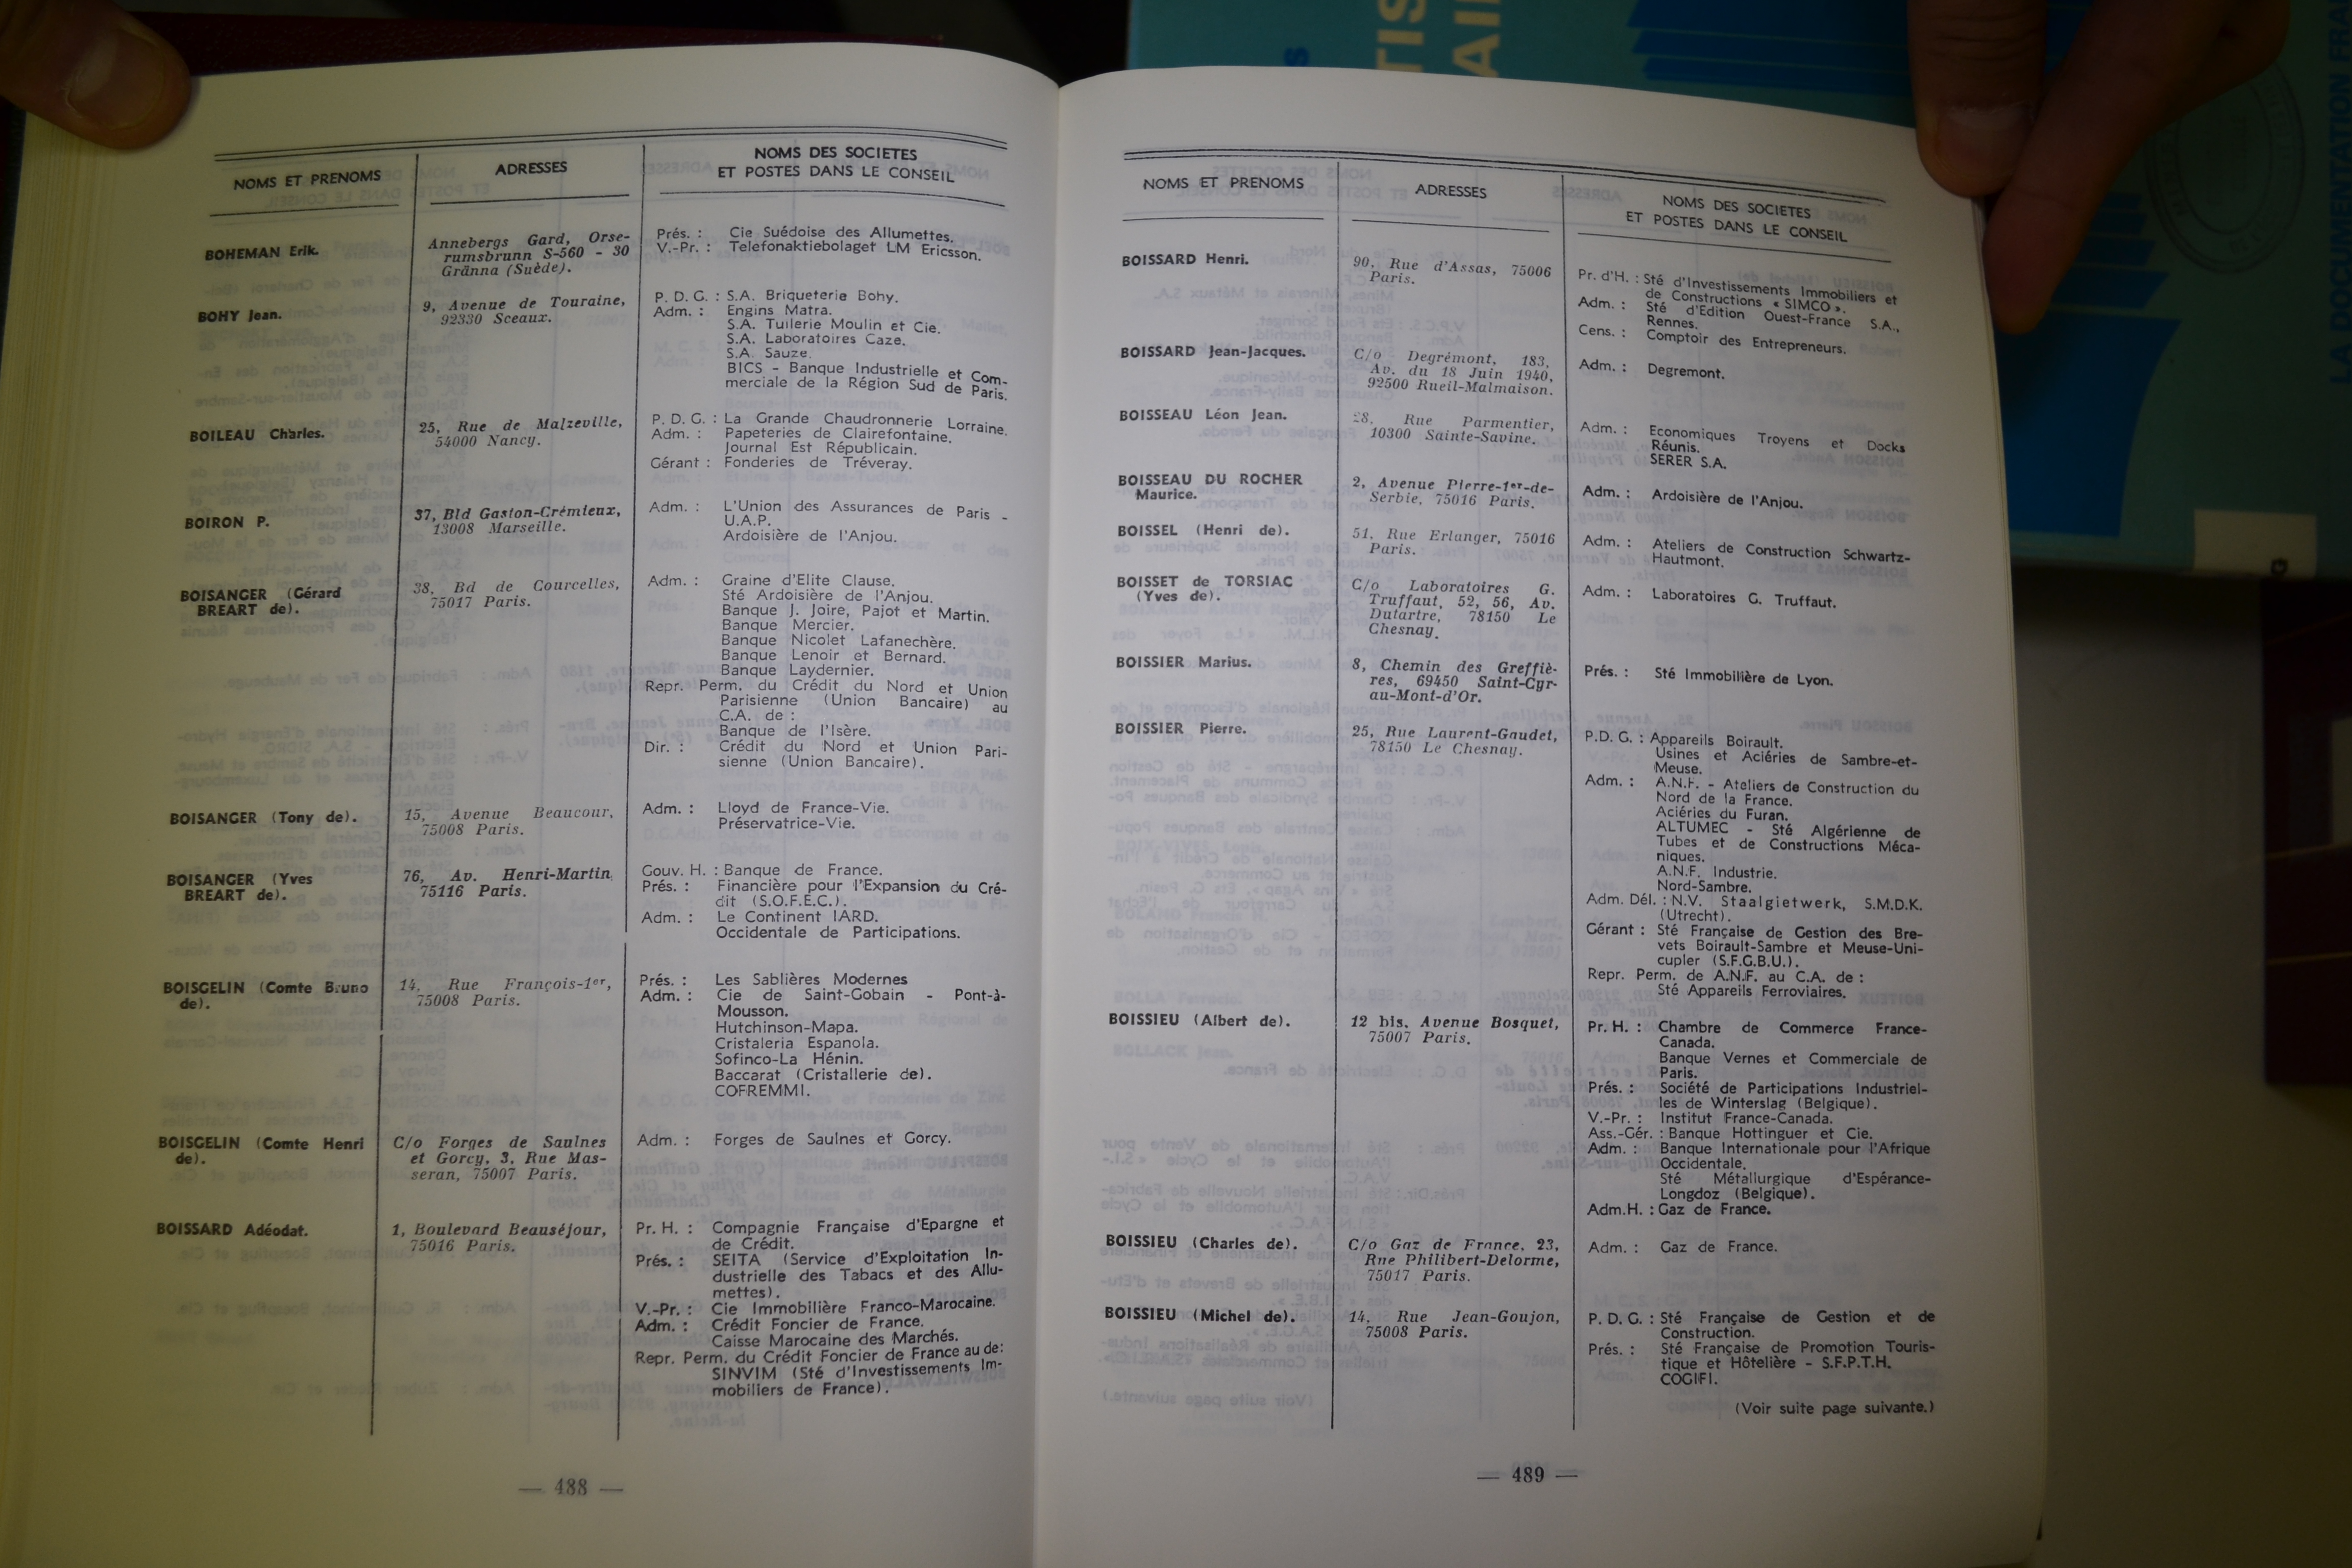 NOMS ET PRENOMS
ADRESSES
NOMS DES SOCIETES
ET POSTES DANS LE CONSEIL
BOHEMAN Erik.
Annebergs Gard, Orse-
rumsbrunn S-560 - 30
Gränna (Suède).
Prés. : Cie Suédoise des Allumettes.
V.-Pr. : Telefonaktiebolaget LM Ericsson.
BOHY Jean.
9, Avenue de Touraine,
92330 Sceaux.
P. D. G. : S.A. Briqueterie Bohy.
Adm. : Engins Matra.
S.A. Tuilerie Moulin et Cie.
S.A. Laboratoires Caze.
S.A. Sauze.
BICS - Banque Industrielle et Com-
merciale de la Région Sud de Paris.
BOILEAU Charles.
25, Rue de Malzeville,
54000 Nancy.
P. D. G. : La Grande Chaudronnerie Lorraine.
Adm. : Papeteries de Clairefontaine.
Journal Est Républicain.
Gérant : Fonderies de Tréveray.
BOIRON P.
37, Bld Gaston-Crémieux,
13008 Marseille.
Adm. : L'Union des Assurances de Paris -
U.A.P.
Ardoisière de l'Anjou.
BOISANGER (Gérard
BREART de).
38, Bd de Courcelles,
75017 Paris.
Adm. : Graine d'Elite Clause.
Sté Ardoisière de l'Anjou.
Banque J. Joire, Pajot et Martin.
Banque Mercier.
Banque Nicolet Lafanechère.
Banque Lenoir et Bernard.
Banque Laydernier.
Repr. Perm. du Crédit du Nord et Union
Parisienne (Union Bancaire) au
C.A. de :
Banque de l'Isère.
Dir. : Crédit du Nord et Union Pari-
sienne (Union Bancaire).
BOISANGER (Tony de).
15, Avenue Beaucour,
75008 Paris.
Adm. : Lloyd de France-Vie.
Préservatrice-Vie.
BOISANGER (Yves
BREART de).
76, Av. Henri-Martin,
75116 Paris.
Gouv. H. : Banque de France.
Prés. : Financière pour l'Expansion du Cré-
dit (S.O.F.E.C.).
Adm. : Le Continent IARD.
Occidentale de Participations.
BOISGELIN (Comte Bruno
de).
14, Rue François-1er,
75008 Paris.
Prés. : Les Sablières Modernes
Adm. : Cie de Saint-Gobain - Pont-à-
Mousson.
Hutchinson-Mapa.
Cristaleria Espanola.
Sofinco-La Hénin.
Baccarat (Cristallerie de).
COFREMMI.
BOISGELIN (Comte Henri
de).
C/o Forges de Saulnes
et Gorcy, 3, Rue Mas-
seran, 75007 Paris.
Adm. : Forges de Saulnes et Gorcy.
BOISSARD Adéodat.
1, Boulevard Beauséjour,
75016 Paris.
Pr. H. : Compagnie Française d'Epargne et
de Crédit.
Prés. : SEITA (Service d'Exploitation In-
dustrielle des Tabacs et des Allu-
mettes).
V.-Pr. : Cie Immobilière Franco-Marocaine.
Adm. : Crédit Foncier de France.
Caisse Marocaine des Marchés.
Repr. Perm. du Crédit Foncier de France au de:
SINVIM (Sté d'Investissements Im-
mobiliers de France).
— 488 —
NOMS ET PRENOMS
ADRESSES
NOMS DES SOCIETES
ET POSTES DANS LE CONSEIL
BOISSARD Henri.
90, Rue d'Assas, 75006
Paris.
Pr. d'H. : Sté d'Investissements Immobiliers et
de Constructions « SIMCO ».
Adm. : Sté d'Edition Ouest-France S.A.,
Rennes.
Cens. : Comptoir des Entrepreneurs.
BOISSARD Jean-Jacques.
C/o Degrémont, 183,
Av. du 18 Juin 1940,
92500 Rueil-Malmaison.
Adm. : Degremont.
BOISSEAU Léon Jean.
28, Rue Parmentier,
10300 Sainte-Savine.
Adm. : Economiques Troyens et Docks
Réunis.
SERER S.A.
BOISSEAU DU ROCHER
Maurice.
2, Avenue Pierre-1er-de-
Serbie, 75016 Paris.
Adm. : Ardoisière de l'Anjou.
BOISSEL (Henri de).
51, Rue Erlanger, 75016
Paris.
Adm. : Ateliers de Construction Schwartz-
Hautmont.
BOISSET de TORSIAC
(Yves de).
C/o Laboratoires G.
Truffaut, 52, 56, Av.
Dutartre, 78150 Le
Chesnay.
Adm. : Laboratoires G. Truffaut.
BOISSIER Marius.
8, Chemin des Greffiè-
res, 69450 Saint-Cyr-
au-Mont-d'Or.
Prés. : Sté Immobilière de Lyon.
BOISSIER Pierre.
25, Rue Laurent-Gaudet,
78150 Le Chesnay.
P.D. G. : Appareils Boirault.
Usines et Aciéries de Sambre-et-
Meuse.
Adm. : A.N.F. - Ateliers de Construction du
Nord de la France.
Aciéries du Furan.
ALTUMEC - Sté Algérienne de
Tubes et de Constructions Méca-
niques.
A.N.F. Industrie.
Nord-Sambre.
Adm. Dél. : N.V. Staalgietwerk, S.M.D.K.
(Utrecht).
Gérant : Sté Française de Gestion des Bre-
vets Boirault-Sambre et Meuse-Uni-
cupler (S.F.G.B.U.).
Repr. Perm. de A.N.F. au C.A. de :
Sté Appareils Ferroviaires.
BOISSIEU (Albert de).
12 bis, Avenue Bosquet,
75007 Paris.
Pr. H. : Chambre de Commerce France-
Canada.
Banque Vernes et Commerciale de
Paris.
Prés. : Société de Participations Industriel-
les de Winterslag (Belgique).
V.-Pr. : Institut France-Canada.
Ass.-Gér. : Banque Hottinguer et Cie.
Adm. : Banque Internationale pour l'Afrique
Occidentale.
Sté Métallurgique d'Espérance-
Longdoz (Belgique).
Adm.H. : Gaz de France.
BOISSIEU (Charles de).
C/o Gaz de France, 23,
Rue Philibert-Delorme,
75017 Paris.
Adm. : Gaz de France.
BOISSIEU (Michel de).
14, Rue Jean-Goujon,
75008 Paris.
P. D. G. : Sté Française de Gestion et de
Construction.
Prés. : Sté Française de Promotion Touris-
tique et Hôtelière - S.F.P.T.H.
COGIFI.
(Voir suite page suivante.)
— 489 —
LA DOCUMENTATION FRA
TIS
AI